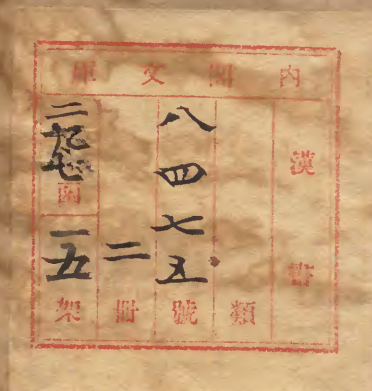 內閣文庫
漢書
類
八四七五號
二冊
二九七函
一五架